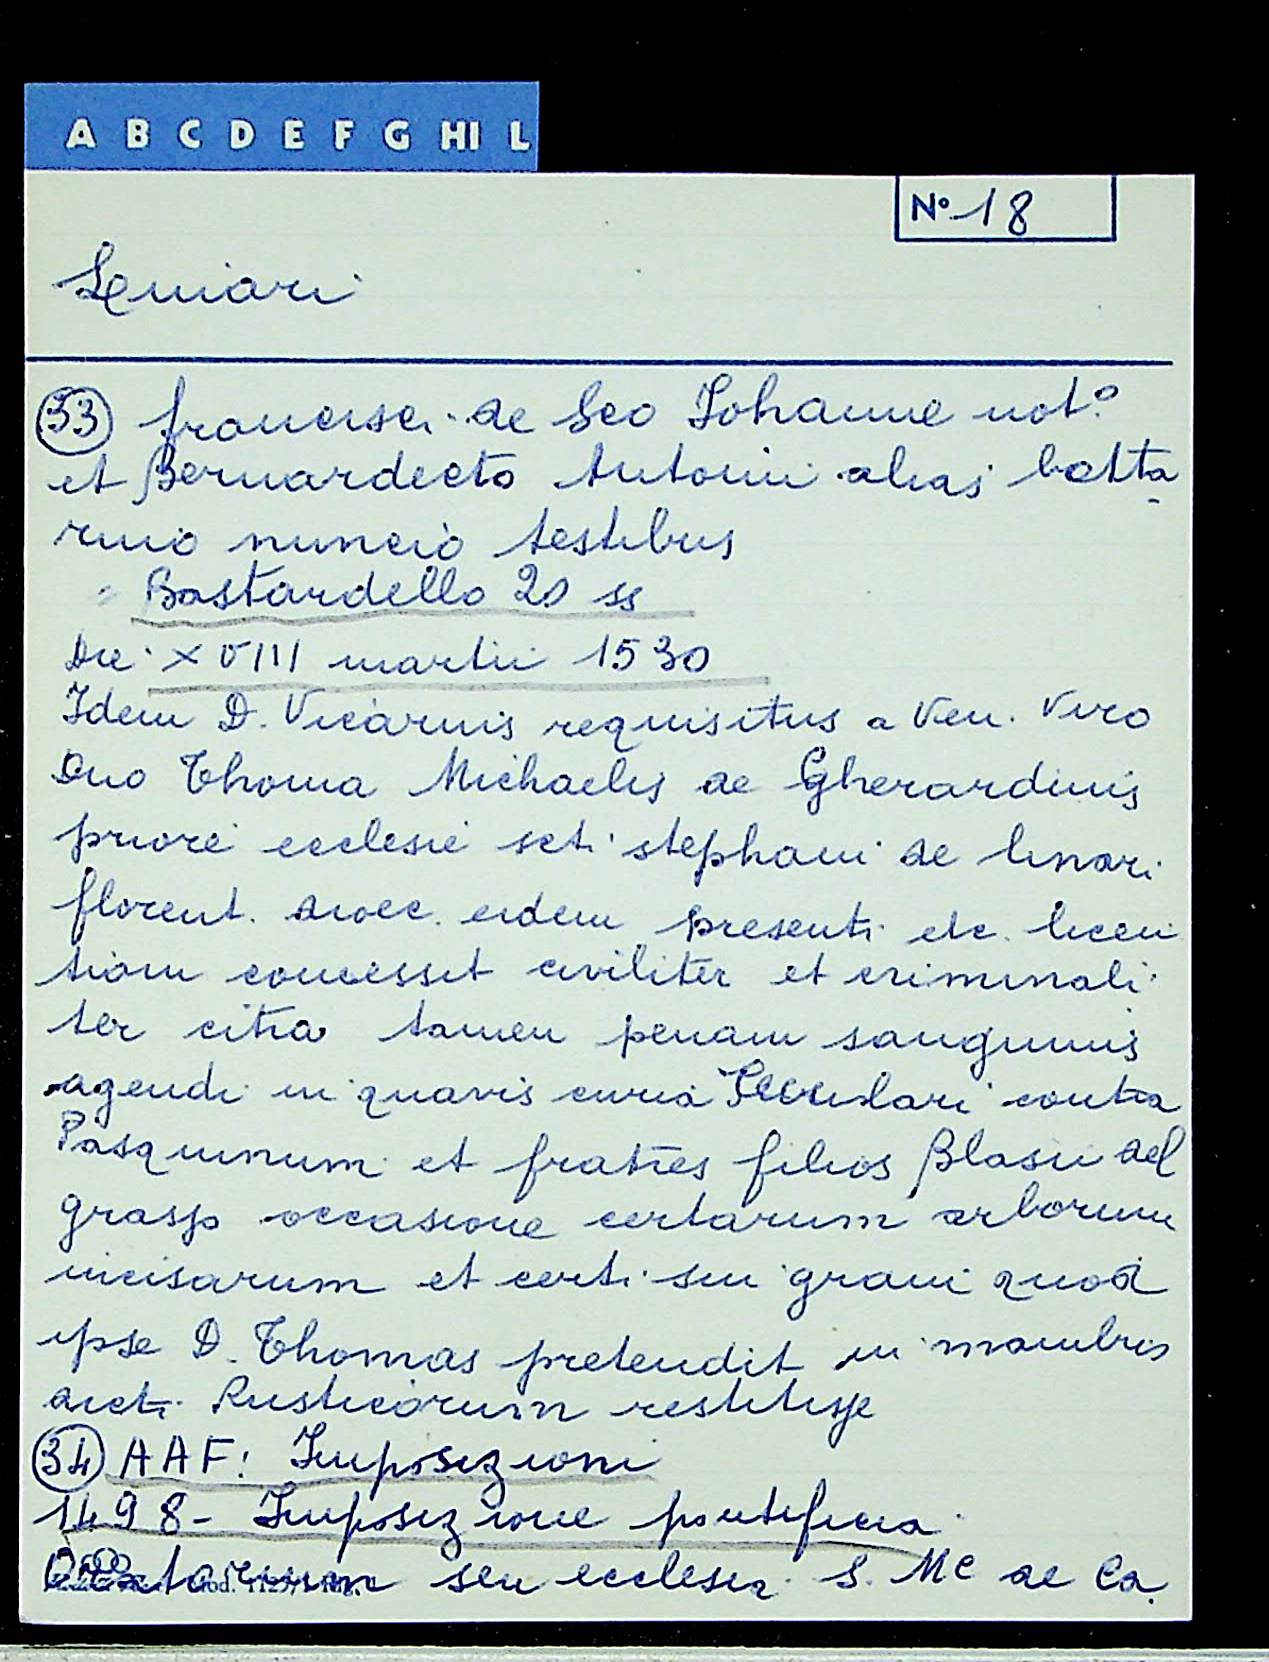 A B C D E F G HI L
Nº 18
(33) francisci de Sco Johanne not.º
et Bernardecto Antonii alias botta
rino nuncio testibus
Bastardello 20 ss
Die XVIII martii 1530
Idem D. Vicarius requisitus a Ven. Viro
Dno Thoma Michaelis de Gherardinis
priore ecclesie scti stephani de linari
florent. dioec. eidem presenti etc. licen
tiam concessit civiliter et criminali
ter citra tamen penam sanguinis
agendi in quavis curia Seculari contra
Pasquinum et fratres filios Blasii del
grasso occasione certarum arborum
incisarum et certi sui grani quod
ipse D. Thomas pretendit in manibus
dict. Rusticorum restitisse
(34) AAF: Imposizioni
1498 - Imposizione pontificia
Oratorium seu ecclesia S. Me de Ca.